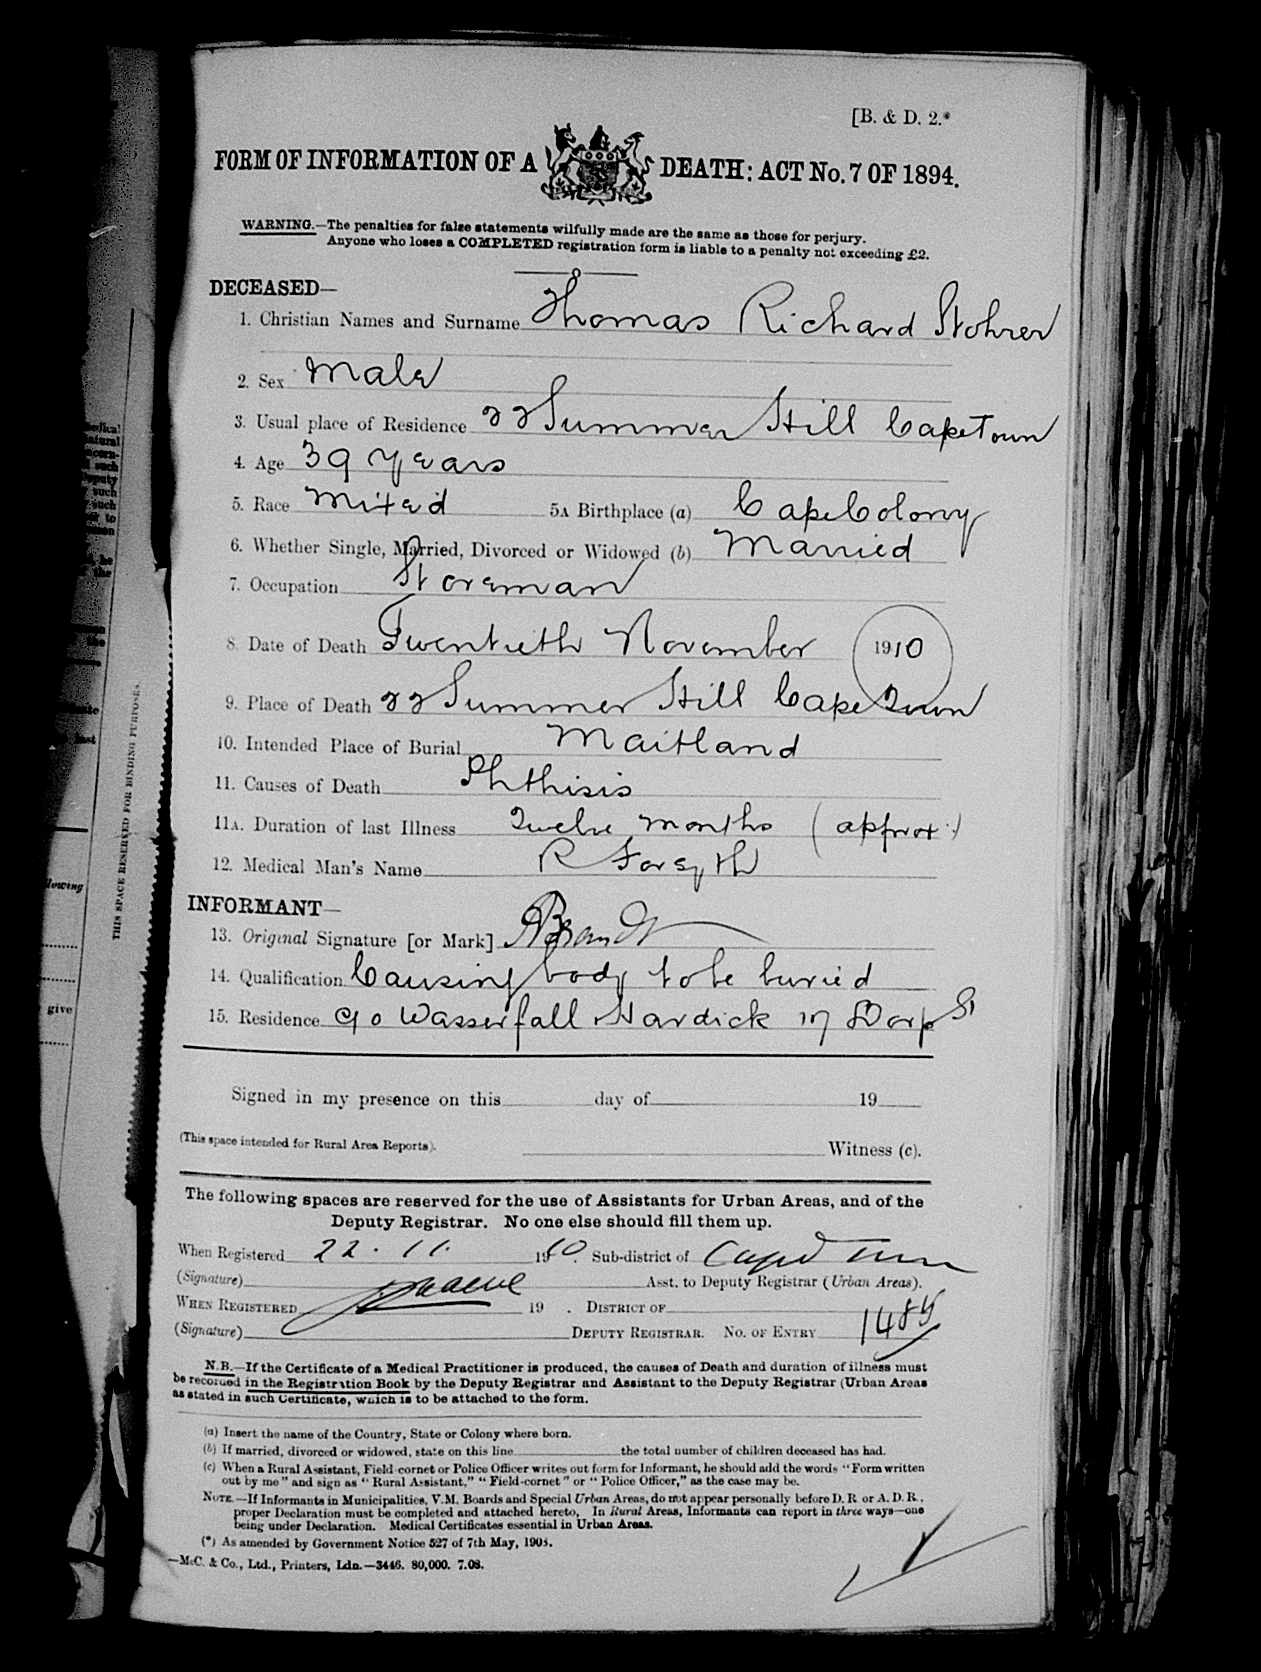 [B. & D. 2.*
FORM OF INFORMATION OF A DEATH: ACT No. 7 OF 1894.
WARNING.—The penalties for false statements wilfully made are the same as those for perjury.
Anyone who loses a COMPLETED registration form is liable to a penalty not exceeding £2.
DECEASED—
1. Christian Names and Surname Thomas Richard Stohrer
2. Sex Male
3. Usual place of Residence 22 Summer Hill CapeTown
4. Age 39 Years
5. Race Mixed 5A Birthplace (a) Cape Colony
6. Whether Single, Married, Divorced or Widowed (b) Married
7. Occupation Storeman
8. Date of Death Twentieth November 1910
9. Place of Death 22 Summer Hill Cape Town
10. Intended Place of Burial Maitland
11. Causes of Death Phthisis
11A. Duration of last Illness Twelve Months (approx:)
12. Medical Man's Name R Forsyth
INFORMANT—
13. Original Signature [or Mark] Brandt
14. Qualification Causing body to be buried
15. Residence c/o Wasserfall Hardick 17 Dorp St
Signed in my presence on this day of 19
(This space intended for Rural Area Reports).
Witness (c).
The following spaces are reserved for the use of Assistants for Urban Areas, and of the
Deputy Registrar. No one else should fill them up.
When Registered 22. 11. 1910. Sub-district of Cape Town
(Signature) Asst. to Deputy Registrar (Urban Areas).
WHEN REGISTERED 19 . DISTRICT OF
(Signature) DEPUTY REGISTRAR. NO. OF ENTRY
N.B.—If the Certificate of a Medical Practitioner is produced, the causes of Death and duration of illness must
be recorded in the Registration Book by the Deputy Registrar and Assistant to the Deputy Registrar (Urban Areas
as stated in such Certificate, which is to be attached to the form.
(a) Insert the name of the Country, State or Colony where born.
(b) If married, divorced or widowed, state on this line the total number of children deceased has had.
(c) When a Rural Assistant, Field-cornet or Police Officer writes out form for Informant, he should add the words "Form written
out by me" and sign as "Rural Assistant," "Field-cornet" or "Police Officer," as the case may be.
NOTE.—If Informants in Municipalities, V.M. Boards and Special Urban Areas, do not appear personally before D. R. or A. D. R.,
proper Declaration must be completed and attached hereto. In Rural Areas, Informants can report in three ways—one
being under Declaration. Medical Certificates essential in Urban Areas.
(*) As amended by Government Notice 527 of 7th May, 1903.
—McC. & Co., Ltd., Printers, Ldn.—3446. 80,000. 7.08.
THIS SPACE RESERVED FOR BINDING PURPOSES.